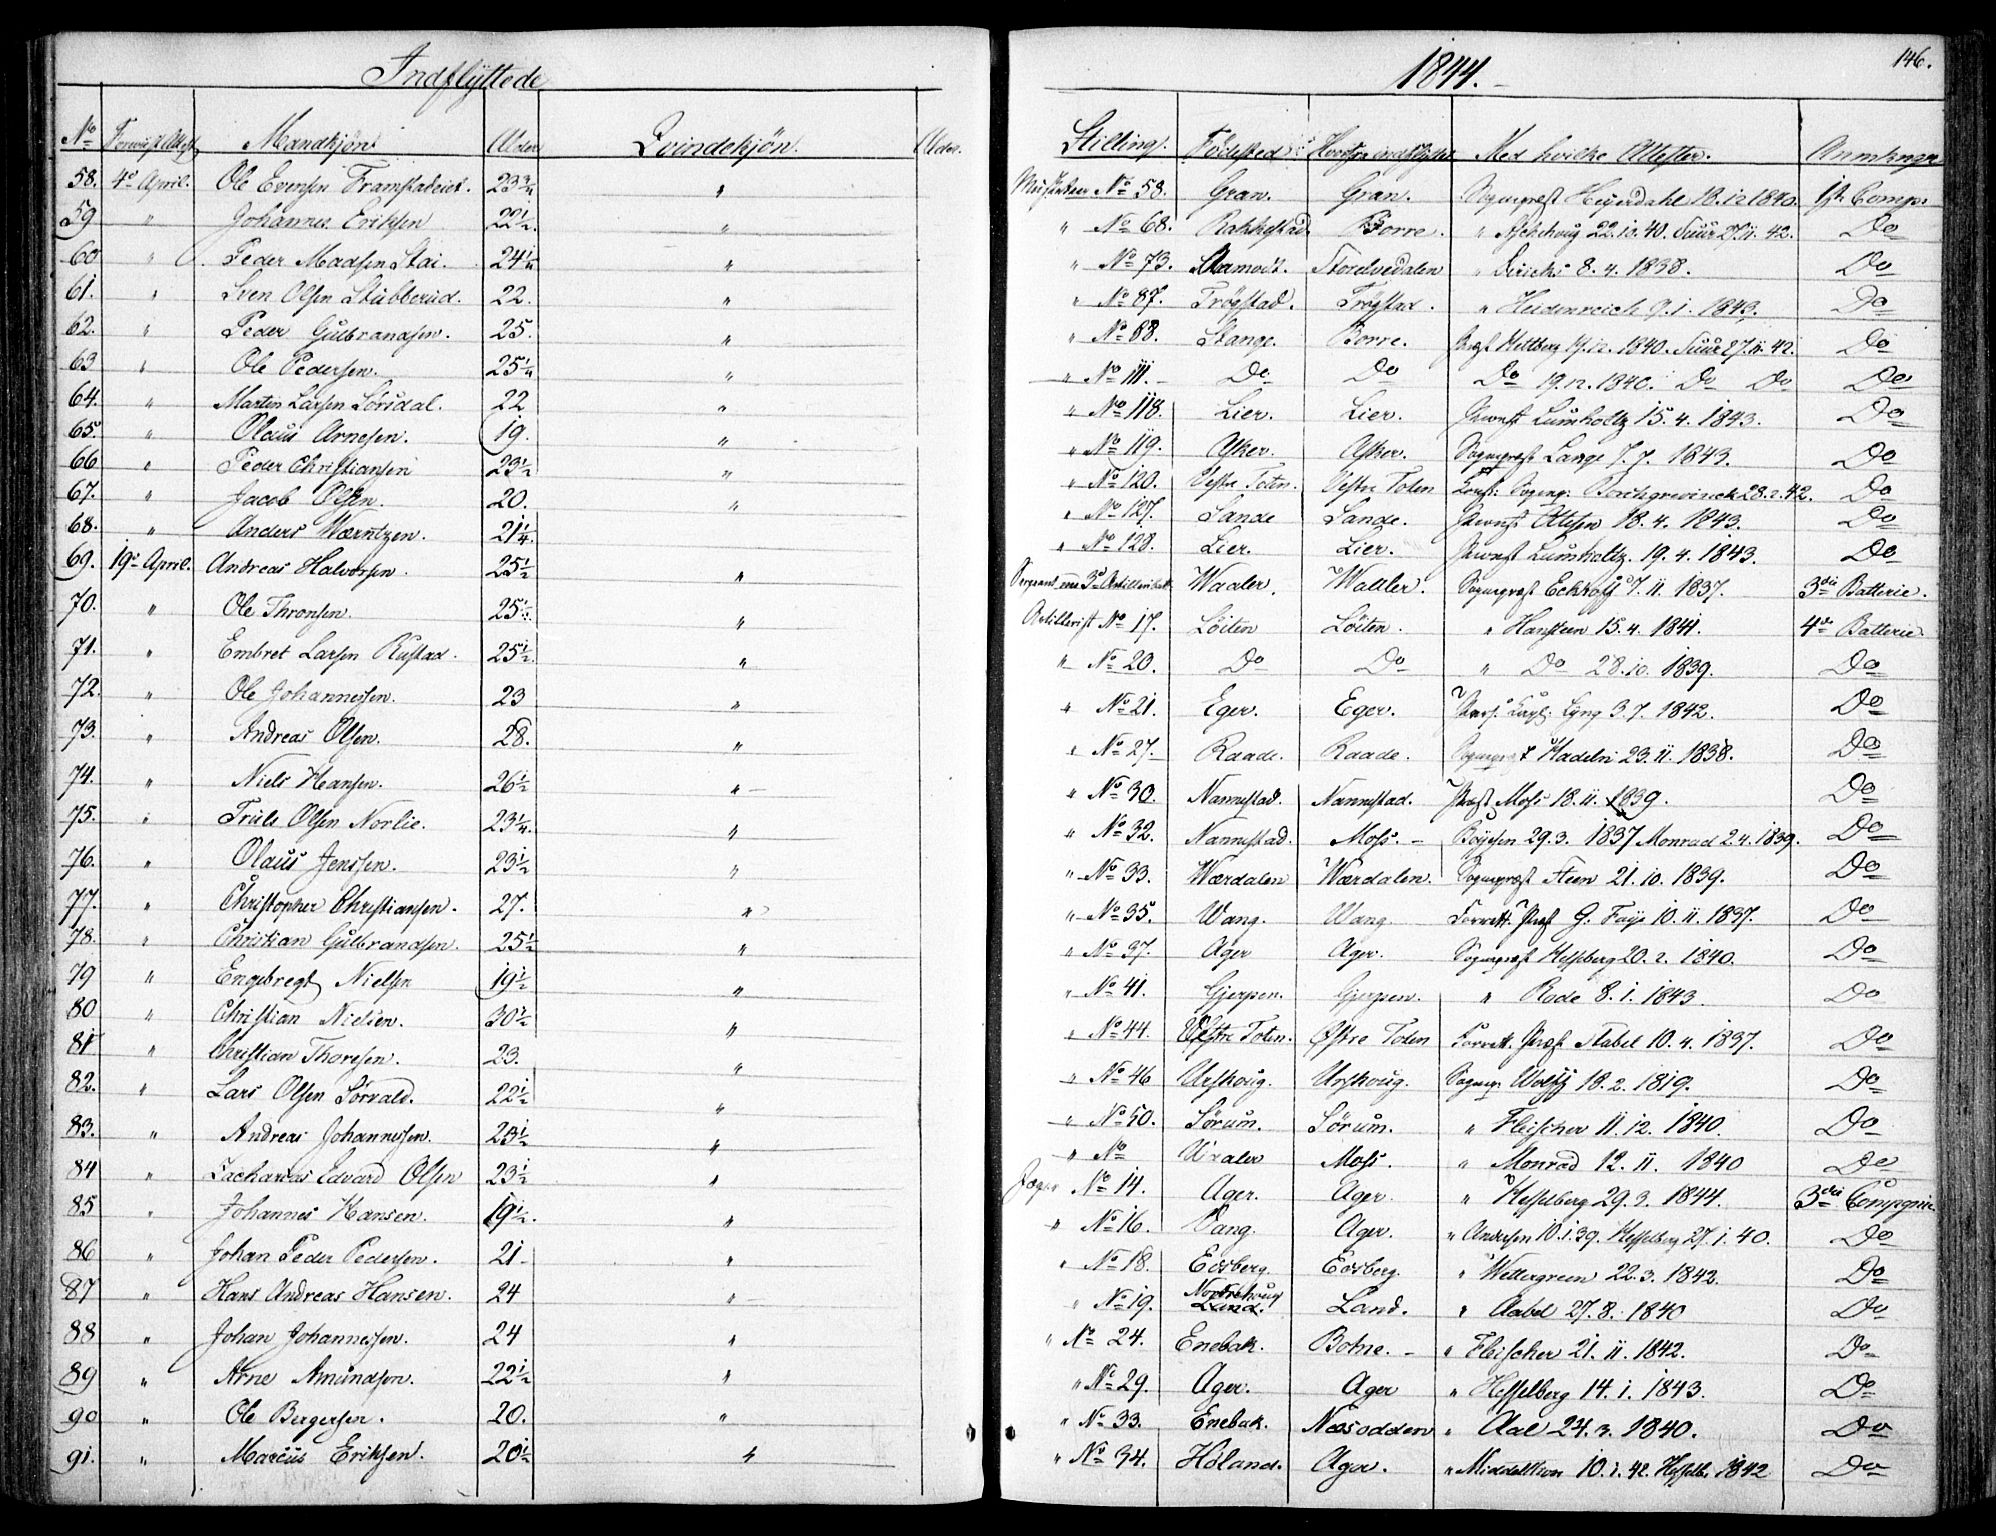 Indflyttede
1844.
146.
No Forevist Attest Mandkjön Alder Qvindekjön. Alder. Stilling. Födested Hvorfra indflyttet Med hvilke Attester. Anmkngr
58. 4de April. Ole Evensen Framstadeiet. 23 3/4 " Musketeer No 58. Gran. Gran. Sognepræst Heyerdahl 16.12 1840. 1ste Comp.
59 " Johannes Eriksen 22 1/2. " " No 68. Rakkestad. Borre. " 22.10.40. 27.11.42. Do
60 " Peder Madsen Stai. 24 1/4 " " No 73. Aamodt. Storelvedalen " 8.4.1838. Do
61. " Sven Olsen Stubberud. 22. " " No 87. Trögstad. Trögstad. " Heidenreich 9.1.1843. Do
62. " Peder Gulbrandsen. 25. " " No 88. Stange. Borre. Præst 17.12.1840. 27.11.42. Do
63 " Ole Pedersen. 25 1/4 " " No 111. Do Do Do 19.12.1840. Do Do Do
64. " Martin Larsen Sörsdal. 22. " " No 118. Lier. Lier. Provst Lumholtz 15.4.1843. Do
65. " Olaus Arnesen. 19. " " No 119. Asker. Asker. Sognepræst Lange 7.7.1843. Do
66 " Peder Christiansen 23 1/2 " " No 120. Vestre Toten. Vestre Toten Const: Sognep: Borchgrevinck 28.2.42. Do
67. " Jacob Olsen. 20. " " No 127. Sande Sande. Provst Ottesen 18.4.1843. Do
68. " Anders Wærntzen. 21 1/4. " " No 128. Lier. Lier. Provst Lumholtz. 19.4.1843. Do
69. 19de April. Andreas Halvorsen. 25 1/2 " Sergeant 3die Waaler. Waaler. Sognepræst Eckhoff 7.11.1837. 3die Batterie.
70. " Ole Thronsen. 25 1/2. " Artillerist No 17. Löiten Löiten. " Hansteen 15.4.1841. 4de Batterie
71. " Embret Larsen Rustad. 25 1/2. " " No 20. Do Do " Do 28.10.1839. Do
72. " Ole Johannessen. 23 " " No 21. Eger. Eger. Pers. Capl: Lyng 3.7.1842. Do
73. " Andreas Olsen. 28. " " No 27. Raade. Raade. Sognepræst Hadeln 23.11.1838. Do
74. " Niels Hansen. 26 1/2 " " No 30. Nannestad. Nannestad. Præst Moss 18.11.1839. Do
75. " Truls Olsen Norlie. 23 1/4. " " No 32. Nannestad. Moss. Boyesen 29.3.1837 Monrad 2.4.1839. Do
76. " Olaus Jenssen. 23 1/2 " " No 33. Wærdalen Wærdalen. Sognepræst Steen 21.10.1839. Do
77. " Christopher Christiansen. 27. " " No 35. Wang. Wang Forrett. Præst G. Faye 10.11.1837. Do
78. " Christian Gulbrandsen. 25 1/2 " " No 37. Ager Ager. Sognepræst Hesselberg 20.2.1840. Do
79 " Engebregt Nielsen 19 1/2 " " No 41. Gjerpen. Gjerpen. " Rode 8.1.1843. Do
80 " Christian Nielsen. 30 1/2 " " No 44. Östre Toten. Östre Toten Forrett. Præst Stabel 10.4.1837. Do
81 " Christian Thoresen. 23. " " No 46 Urskoug. Urskoug. Sognep: Wolff 18.2.1819. Do
82. " Lars Olsen Sörvald. 22 1/2 " " No 50. Sörum. Sörum. " Fleischer 11.12.1840. Do
83. " Andreas Johannessen. 23 1/2 " " No Waaler Moss. " Monrad 12.11.1840 Do
84 " Zacharias Edvard Olsen 23 1/2 " Jæger No 14. Ager. Ager " Hesselberg 29.3.1844. 3die Compagnie
85 " Johannes Hansen. 19 1/2. " " No 16. Vang. Ager. " Andersen 10.1.39. Hesselberg 27.1.40. Do
86 " Johan Peder Pedersen. 21 " " No 18. Edsberg. Edsberg. " Wettergreen 22.3.1842. Do
87 " Hans Andreas Hansen. 24 " " No 19. Nordrehoug Land. Land. " Aabel 27.8.1840 Do
88 " Johan Johannessen. 24 " " No 24. Enebak. Botne. " Fleischer 21.11.1842. Do
89 " Arne Amundsen. 22 1/2 " " No 29. Ager. Ager " Hesselberg 14.1.1843. Do
90 " Ole Bergersen. 20. " " No 33. Enebak. Næsodden " Aal 24.3.1840. Do
91. " Marcus Eriksen. 20 1/2 " " No 34. Höland. Ager. " Middelthon 10.1.42. Hesselb. 1842 Do